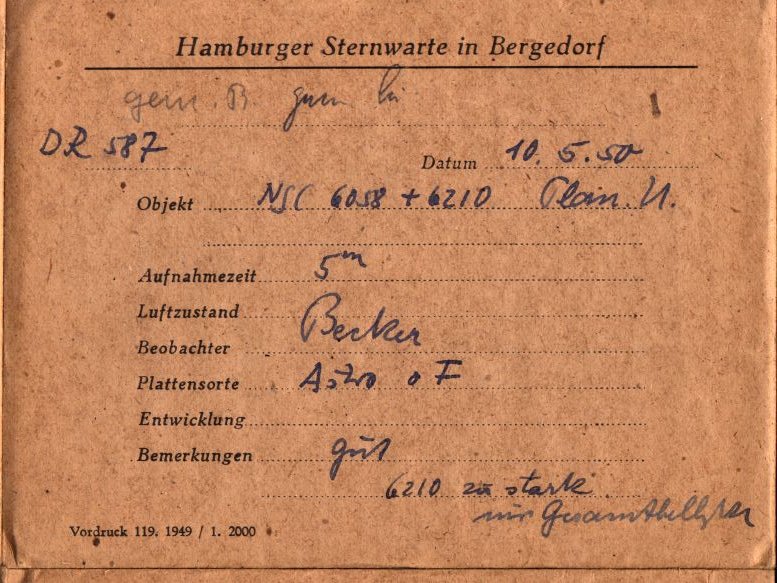 Hamburger Sternwarte in Bergedorf
gem. B.
DR 587
Datum 10. 5. 50
Objekt NGC 6058 + 6210 Plan. N.
Aufnahmezeit 5m
Luftzustand
Beobachter Becker
Plattensorte Astro o F
Entwicklung
Bemerkungen gut
6210 zu stark
nur
Vordruck 119. 1949 / 1. 2000